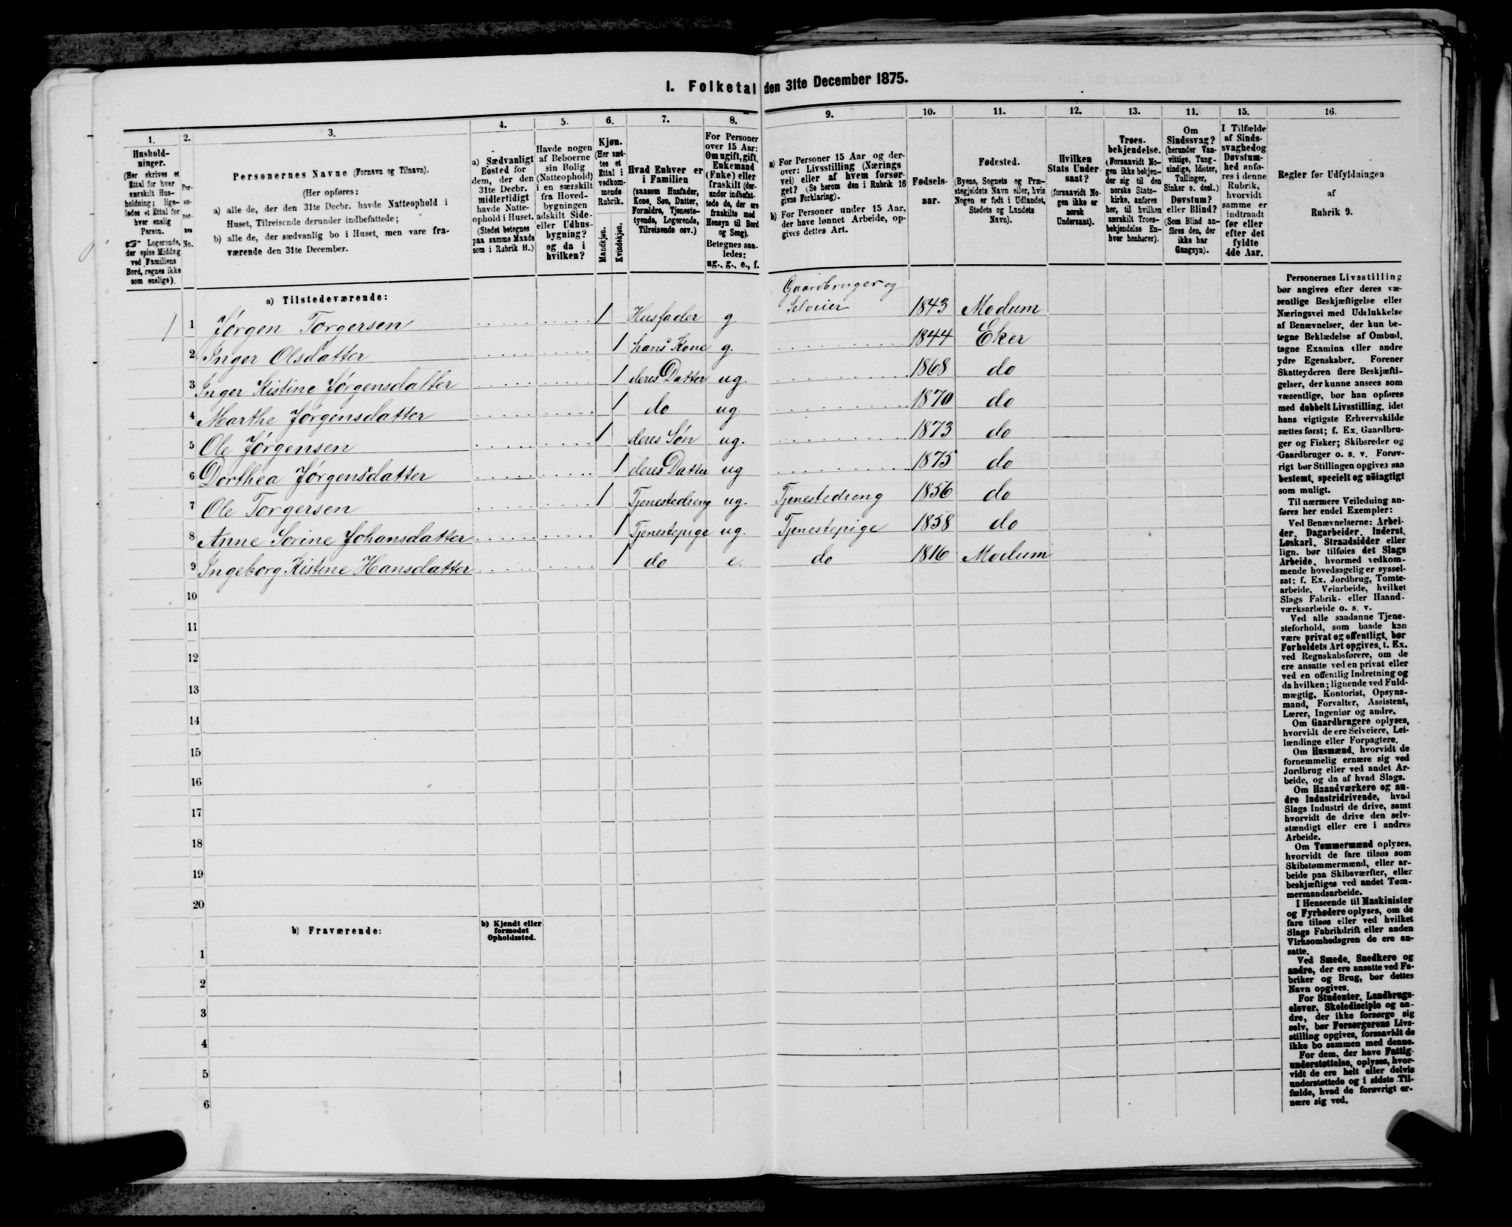 I. Folketal den 31te December 1875.
1. 2. 3. 4. 5. 6. 7. 8. 9. 10. 11. 12. 13. 11. 15. 16.
Hushold-
ninger.
(Her skrives et
Ettal for hver
særskilt Hus-
holdning; lige-
ledes et Ettal for
hver enslig
Person.
☞ Logerende,
der spise Middag
ved Familiens
Bord, regnes ikke
som enslige).
Per-
so-
ner-
nes
No.
Personernes Navne (Fornavn og Tilnavn).
(Her opføres:
a) alle de, der den 31te Decbr. havde Natteophold i
Huset, Tilreisende derunder indbefattede;
b) alle de, der sædvanlig bo i Huset, men vare fra-
værende den 31te December.
a) Sædvanligt
Bosted for
dem, der den
31te Decbr.
midlertidigt
havde Natte-
ophold i Huset.
(Stedet betegnes
paa samme Maade
som i Rubrik 11.)
Havde nogen
af Beboerne
sin Bolig
(Natteophold)
i en særskilt
fra Hoved-
bygningen
adskilt Side-
eller Udhus-
bygning?
og da i
hvilken?
Kjøn.
(Her sæt-
tes et
Ettal i
vedkom-
mende
Rubrik.
Mandkjøn.
Kvindekjøn.
Hvad Enhver er
i Familien
(saasom Husfader,
Kone, Søn, Datter,
Forældre, Tjeneste-
tyende, Logerende,
Tilreisende osv.)
For Personer
over 15 Aar:
Om ugift, gift,
Enkemand
(Enke) eller
fraskilt (der-
under indbefat-
tede de, der ere
fraskilte med
Hensyn til Bord
og Seng).
Betegnes saa-
ledes:
ug., g., e., f.
a) For Personer 15 Aar og der-
over: Livsstilling (Nærings
vei) eller af hvem forsør-
get? (Se herom den i Rubrik 16
givne Forklaring).
b) For Personer under 15 Aar,
der have lønnet Arbeide, op-
gives dettes Art.
Fødsels-
aar.
Fødested.
(Byens, Sognets og Præ-
stegjeldets Navn eller, hvis
Nogen er født i Udlandet,
Stedets og Landets
Navn).
Hvilken
Stats Under-
saat?
(forsaavidt No-
gen ikke er
norsk
Undersaat).
Troes-
bekjendelse.
(Forsaavidt No-
gen ikke bekjen-
der sig til den
norske Stats-
kirke, anføres
her, til hvilken
særskilt Troes-
bekjendelse En-
hver henhører).
Om
Sindssvag?
(herunder Van-
vittige, Tung-
sindige, Idioter,
Tullinger,
Sinker o. desl.)
Døvstum?
eller Blind?
(Som Blind an-
føres den, der
ikke har
Gangsyn).
I Tilfælde
af Sinds-
svaghed og
Døvstum-
hed anfø-
res i denne
Rubrik,
hvorvidt
samme er
indtraadt
før eller
efter det
fyldte
4de Aar.
Regler for Udfyldningen
af
Rubrik 9.
a) Tilstedeværende:
1 1 Jørgen Torgersen 1 Husfader g Gaardbruger og Selveier 1843 Modum
2 Inger Olsdatter 1 hans Kone g. 1844 Eker
3 Inger Kistine Jørgensdatter 1 deres Datter ug. 1868 do
4 Marthe Jørgensdatter 1 do ug 1870 do
5 Ole Jørgensen 1 deres Søn ug. 1873 do
6 Dorthea Jørgensdatter 1 deres Datter ug 1875 do
7 Ole Torgersen 1 Tjenestedreng ug. Tjenestedreng 1856 do
8 Anne Sorine Johansdatter 1 Tjenestepige ug. Tjenestepige 1858 do
9 Ingeborg Kistine Hansdatter 1 do e. do 1816 Modum
10
11
12
13
14
15
16
17
18
19
20
b) Fraværende:
b) Kjendt eller
formodet
Opholdssted.
1
2
3
4
5
6
Personernes Livsstilling
bør angives efter deres væ-
sentlige Beskjæftigelse eller
Næringsvei med Udelukkelse
af Benævnelser, der kun be-
tegne Beklædelse af Ombud,
tagne Examina eller andre
ydre Egenskaber. Forener
Skatteyderen flere Beskjæfti-
gelser, der kunne ansees som
væsentlige, bør han opføres
med dobbelt Livsstilling, idet
hans vigtigste Erhvervskilde
sættes først; f. Ex. Gaardbru-
ger og Fisker; Skibsreder og
Gaardbruger o. s. v. Forøv-
rigt bør Stillingen opgives saa
bestemt, specielt og nøiagtigt
som muligt.
Til nærmere Veiledning an-
føres her endel Exempler:
Ved Benævnelserne: Arbei-
der, Dagarbeider, Inderst,
Løskarl, Strandsidder eller
lign. bør tilføies det Slags
Arbeide, hvormed vedkom-
mende hovedsagelig er syssel-
sat; f. Ex. Jordbrug, Tomte-
arbeide, Veiarbeide, hvilket
Slags Fabrik- eller Haand-
værksarbeide o. s. v.
Ved alle saadanne Tjene-
steforhold, som baade kan
være privat og offentligt, bør
Forholdets Art opgives, t. Ex.
ved Regnskabsførere, om de
ere ansatte ved en privat eller
ved en offentlig Indretning og
da hvilken; lignende ved Fuld-
mægtig, Kontorist, Opsyns-
mand, Forvalter, Assistent,
Lærer, Ingeniør og andre.
Om Gaardbrugere oplyses,
hvorvidt de ere Selveiere, Lei-
lændinge eller Forpagtere.
Om Husmænd, hvorvidt de
fornemmelig ernære sig ved
Jordbrug eller ved andet Ar-
beide, og da af hvad Slags.
Om Haandværkere og an-
dre Industridrivende, hvad
Slags Industri de drive, samt
hvorvidt de drive den selv-
stændigt eller ere i andres
Arbeide.
Om Tømmermænd oplyses,
hvorvidt de fare tilsøs som
Skibstømmermænd, eller ar-
beide paa Skibsværfter, eller
beskjæftiges ved andet Tøm-
mermandsarbeide.
I Henseende til Maskinister
og Fyrbødere oplyses, om de
fare tilsøs eller ved hvilket
Slags Fabrikdrift eller anden
Virksomhedsgren de ere an-
satte.
Ved Smede, Snedkere og
andre, der ere ansatte ved Fa-
briker og Brug, bør dettes
Navn opgives.
For Studenter, Landbrugs-
elever, Skoledisciple og an-
dre, der ikke forsørge sig
selv, bør Forsørgerens Livs-
stilling opgives, forsaavidt de
ikke bo sammen med denne.
For dem, der have Fattig-
understøttelse, oplyses, hvor-
vidt de ere helt eller delvis
understøttede og i sidste Til-
fælde, hvad de forøvrigt er-
nære sig ved.